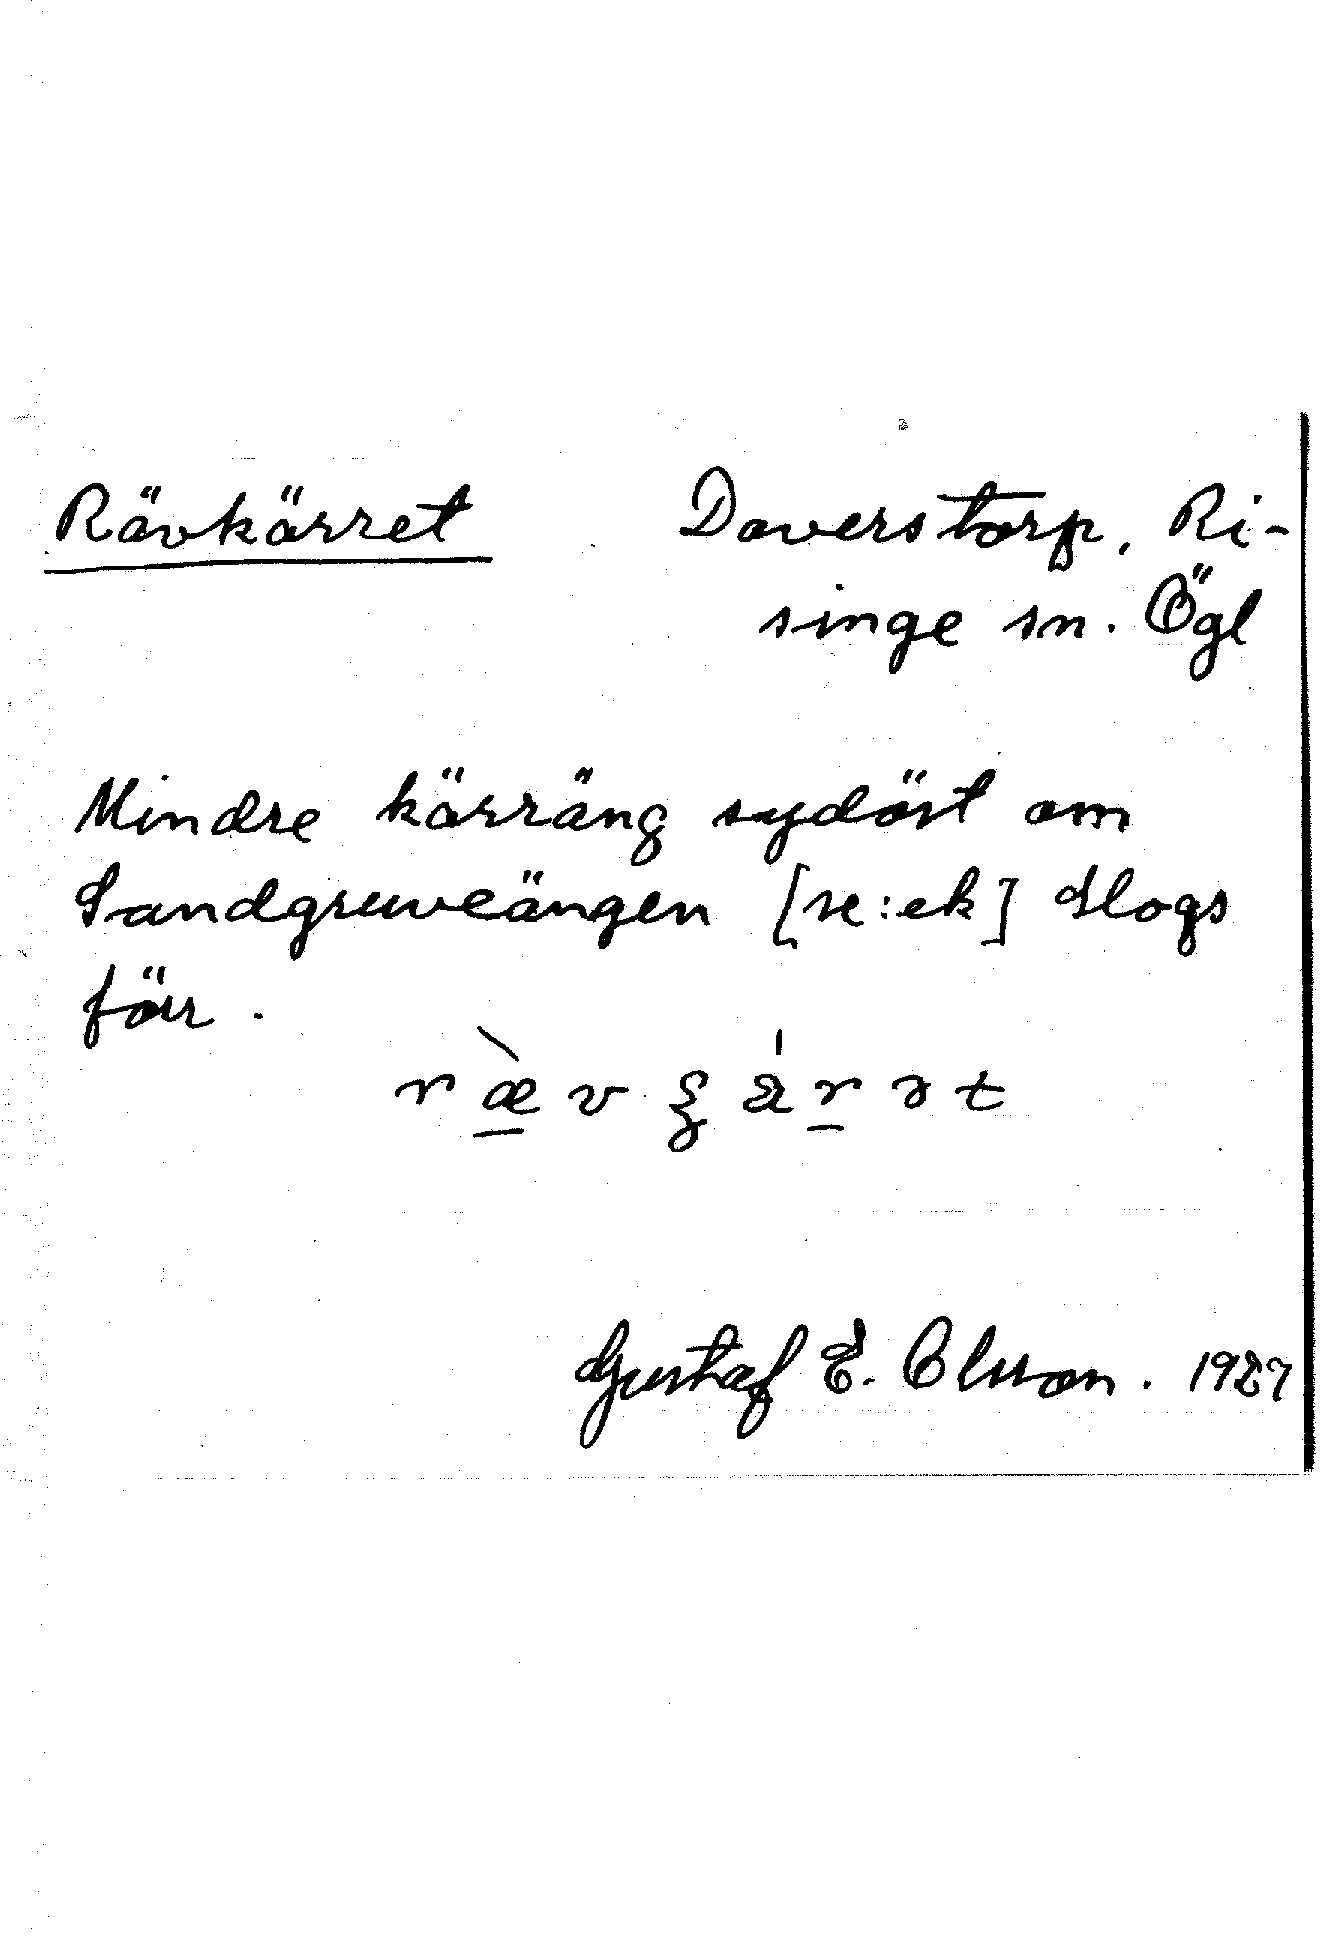 Rävkärret Daverstorp, Ri-
singe sn. Ögl
Mindre kärräng sydöst om
Sandgruveängen [se: ek] Slogs
förr.
Gustaf E. Olsson. 1927